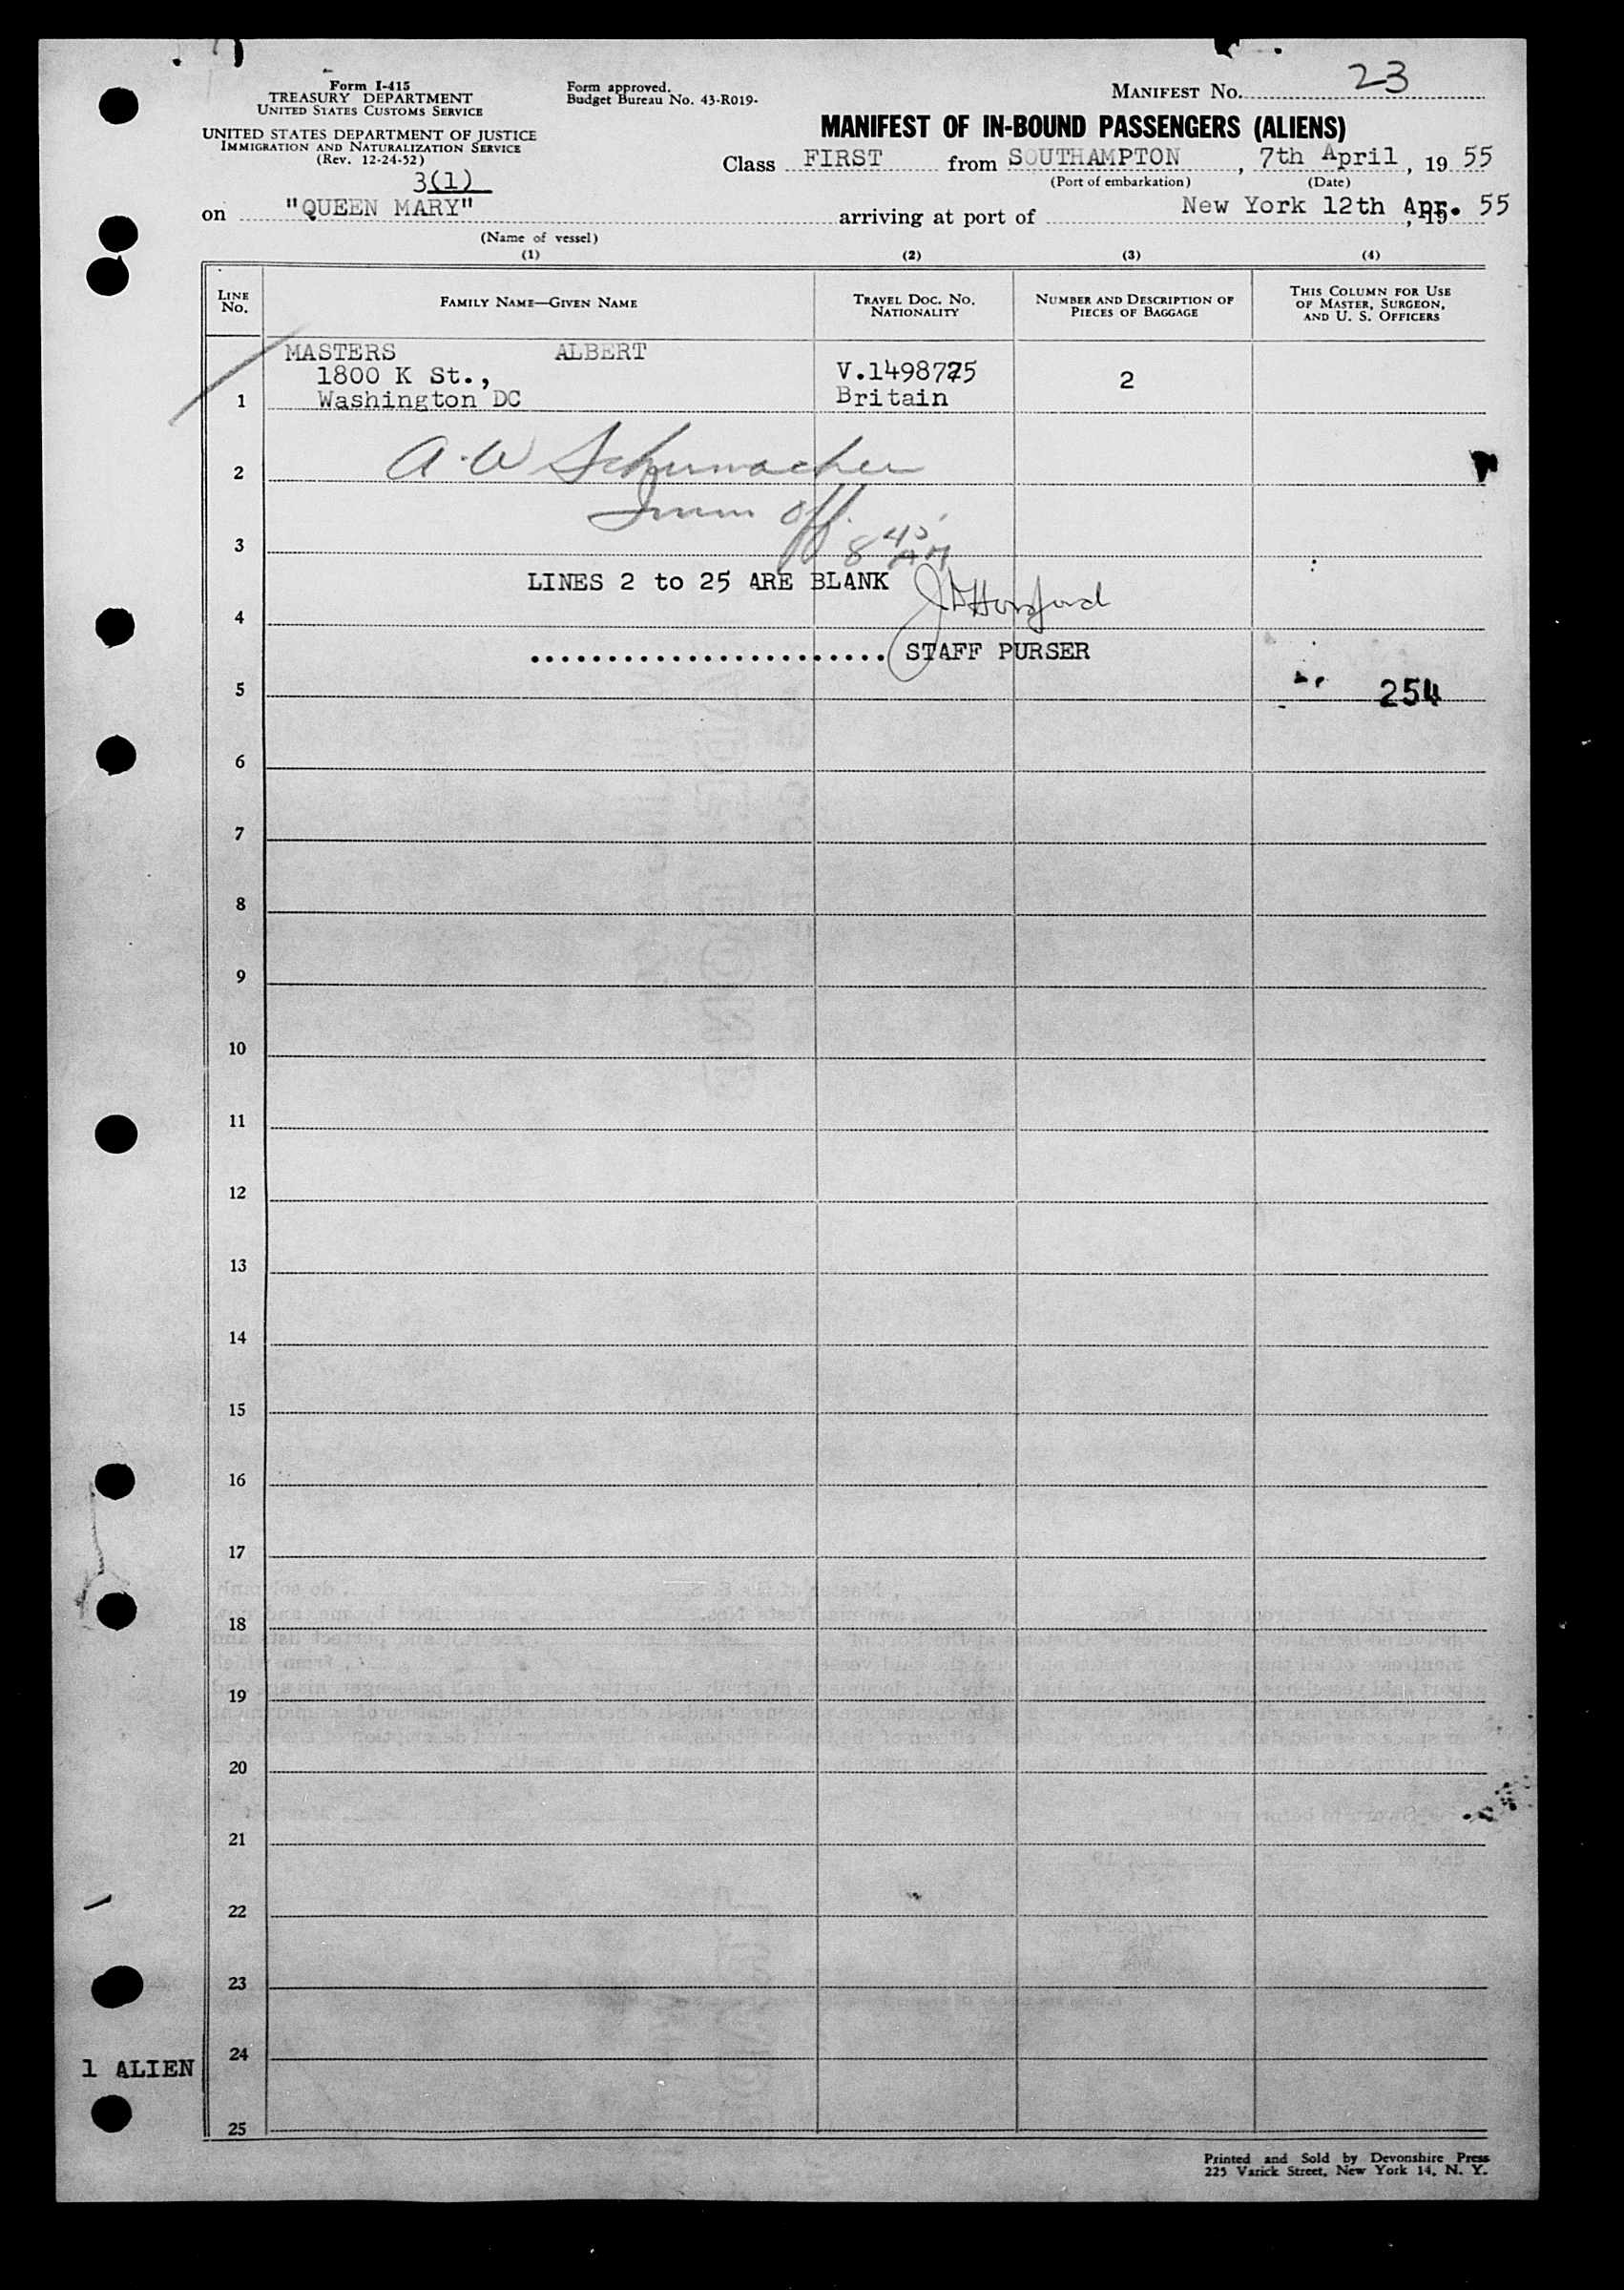 Form I-415
TREASURY DEPARTMENT
UNITED STATES CUSTOMS SERVICE
UNITED STATES DEPARTMENT OF JUSTICE
IMMIGRATION AND NATURALIZATION SERVICE
(Rev. 12-24-52)
3(1)
Form approved.
Budget Bureau No. 43-R019-
MANIFEST NO. 23
MANIFEST OF IN-BOUND PASSENGERS (ALIENS)
Class FIRST from SOUTHAMPTON, 7th April, 19 55
(Port of embarkation) (Date)
on "QUEEN MARY" arriving at port of New York 12th Apr. 55
(Name of vessel)
(1) (2) (3) (4)
LINE NO.
FAMILY NAME—GIVEN NAME
TRAVEL DOC. NO. NATIONALITY
NUMBER AND DESCRIPTION OF PIECES OF BAGGAGE
THIS COLUMN FOR USE OF MASTER, SURGEON, AND U. S. OFFICERS
MASTERS ALBERT
1800 K St., V.1498725 2
1 Washington DC Britain
2 A. W Schumacher
Imm Off.
3 8 45 AM
LINES 2 to 25 ARE BLANK
4
STAFF PURSER
5 254
6
7
8
9
10
11
12
13
14
15
16
17
18
19
20
21
22
23
24
1 ALIEN
25
Printed and Sold by Devonshire Press
225 Varick Street, New York 14, N. Y.